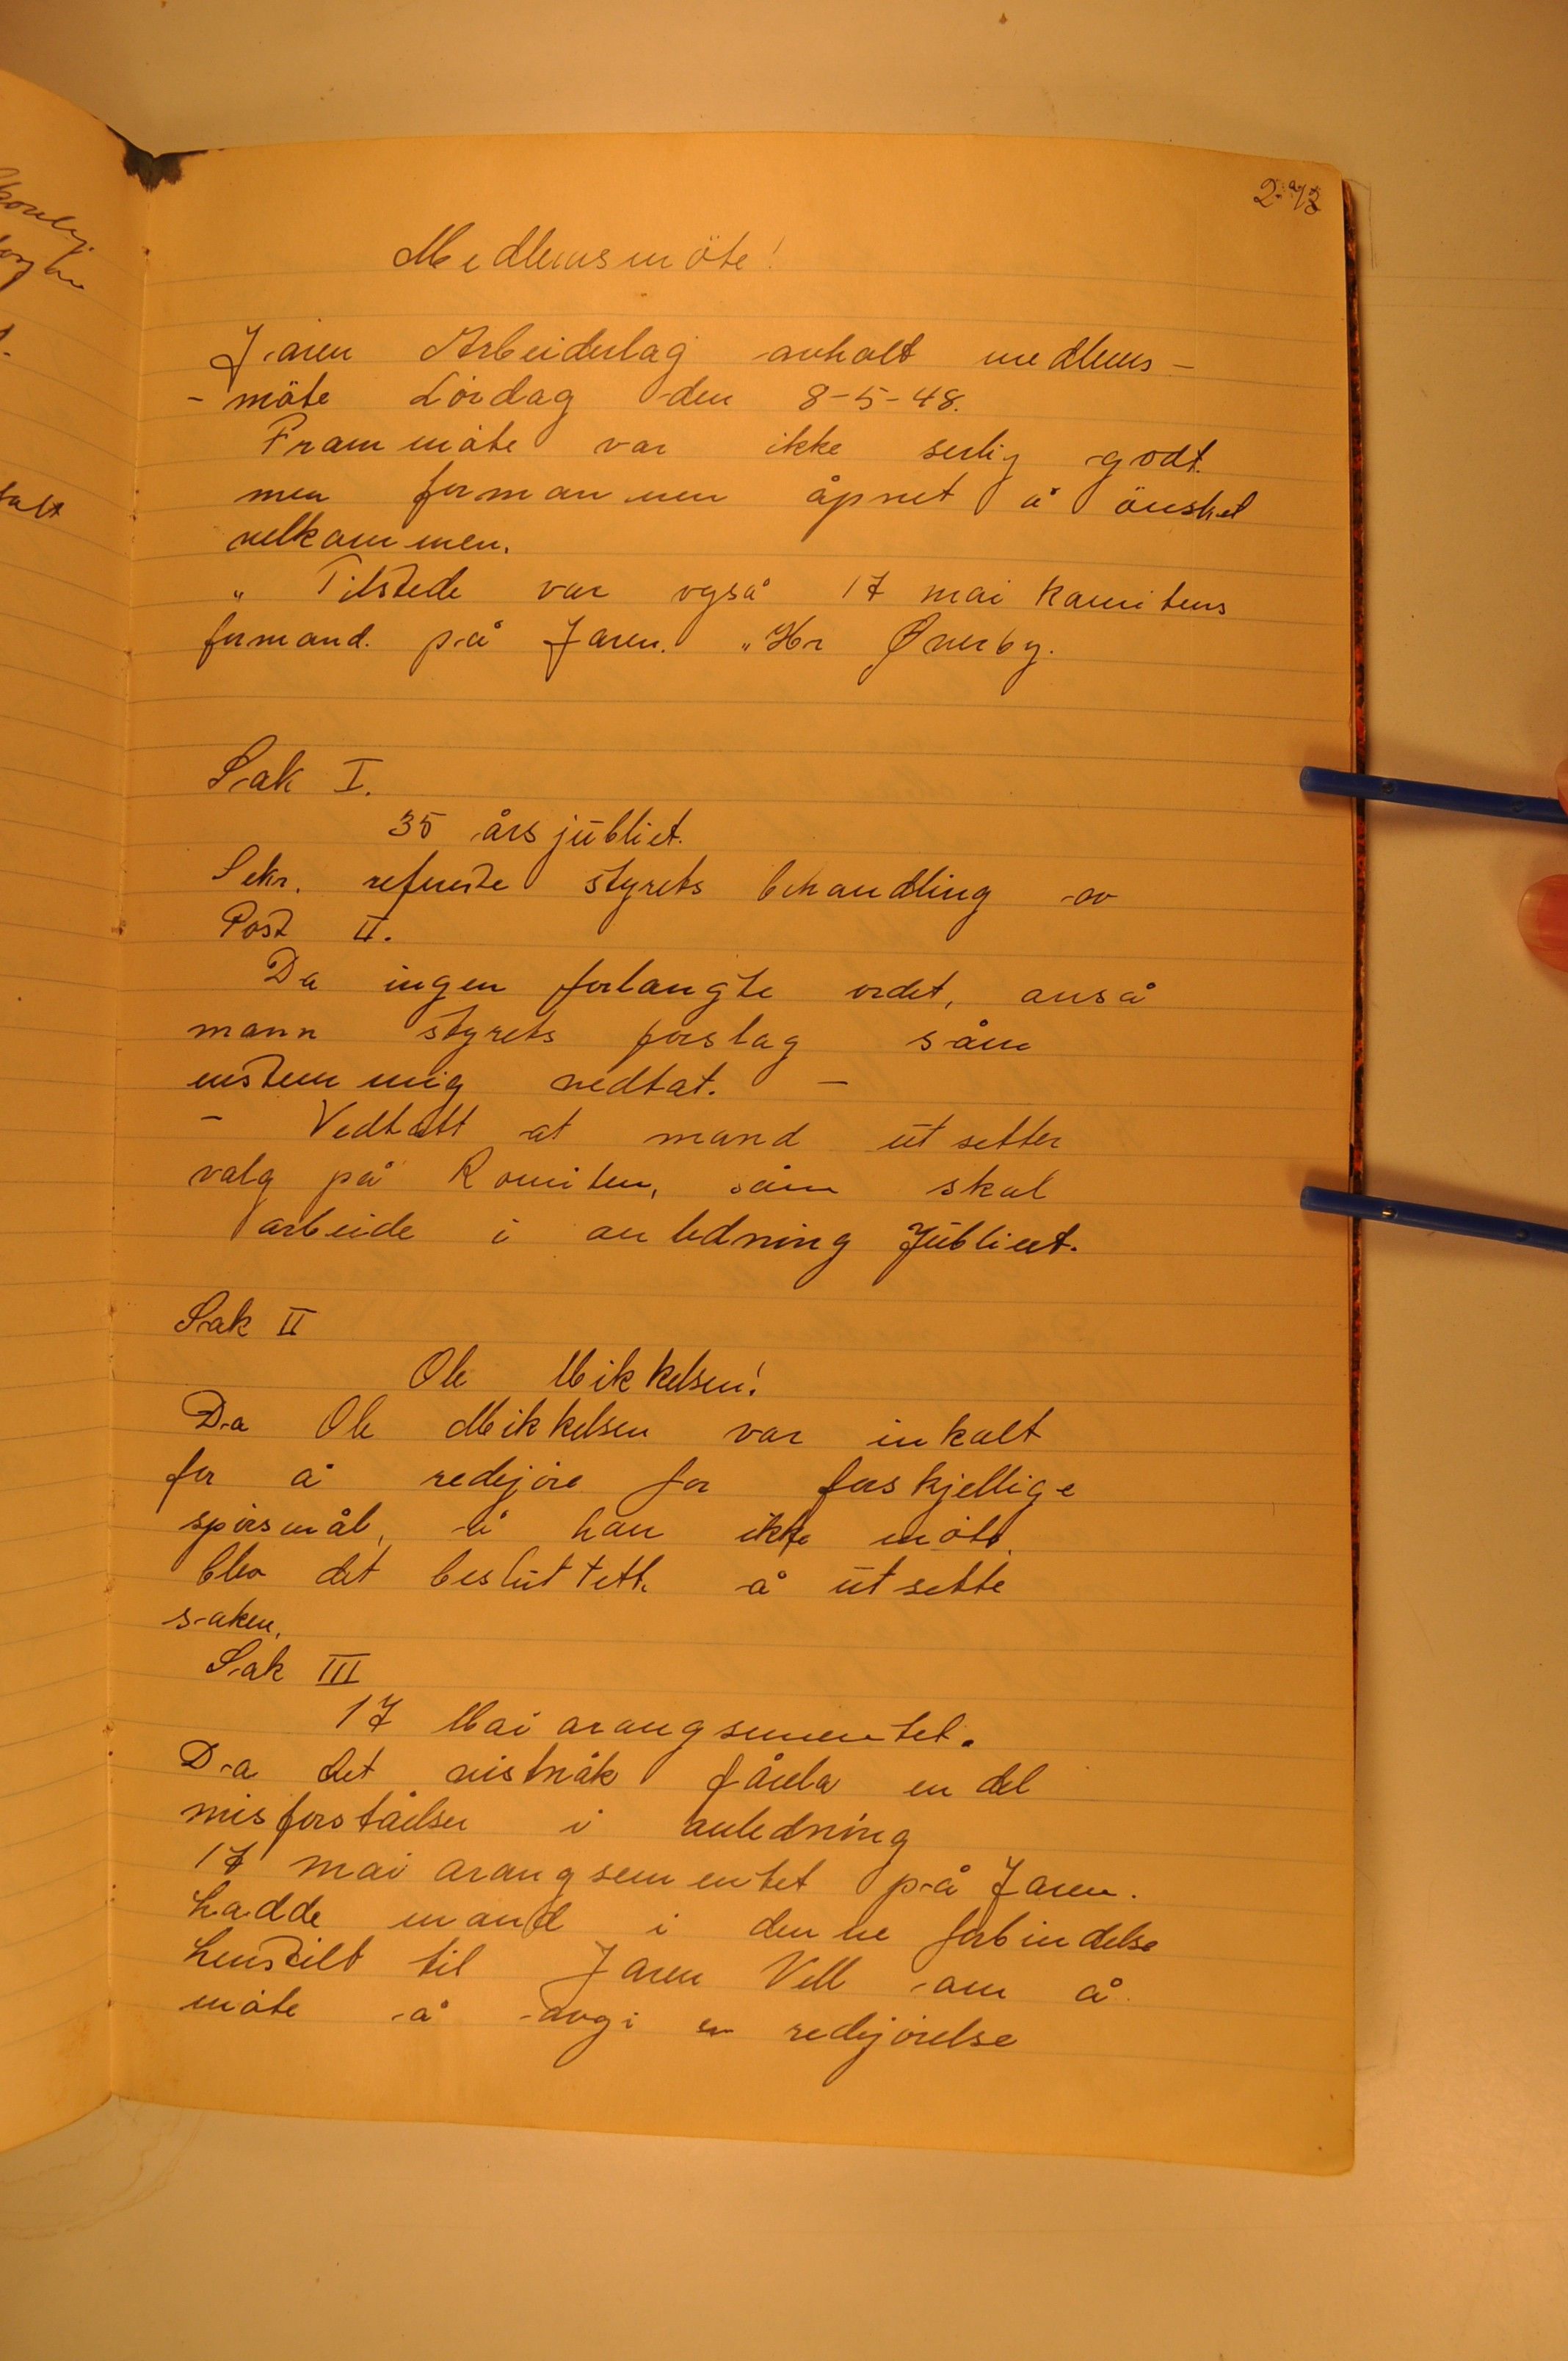 Medlemsmöte!
Jaren Arbeiderlag avholt medlems-
- möte Lördag den 8-5-48.
Frammöte var ikke serlig godt.
men formannen åpnet å önsket
velkommen.
" Tilstede var også 17 mai komitens
formand. på Jaren. "Hr Øverby.
Sak I.
35 års jubliet.
Sekr. referete styrets behandling av
Post II.
Da ingen forlangte ordet, anså
mann styrets forslag såm
enstemmig vedtat. -
- Vedtatt at mand utsetter
valg på Komiten, såm skal
arbeide i anledning Jubliet.
Sak II
Ole Mikkelsen!
Da Ole Mikkelsen var inkalt
for å redejöre for forskjellige
spörsmål, å han ikke möte.
blev det besluttett. å utsette
saken.
Sak III
17 Mai arangsementet.
Da det vistnåk fårela en del
misforståelser i anledning
17 mai arangsementet på Jaren.
hadde mand i denne forbindelse
henstilt til Jaren Vell om å
möte å avgi en redejörelse